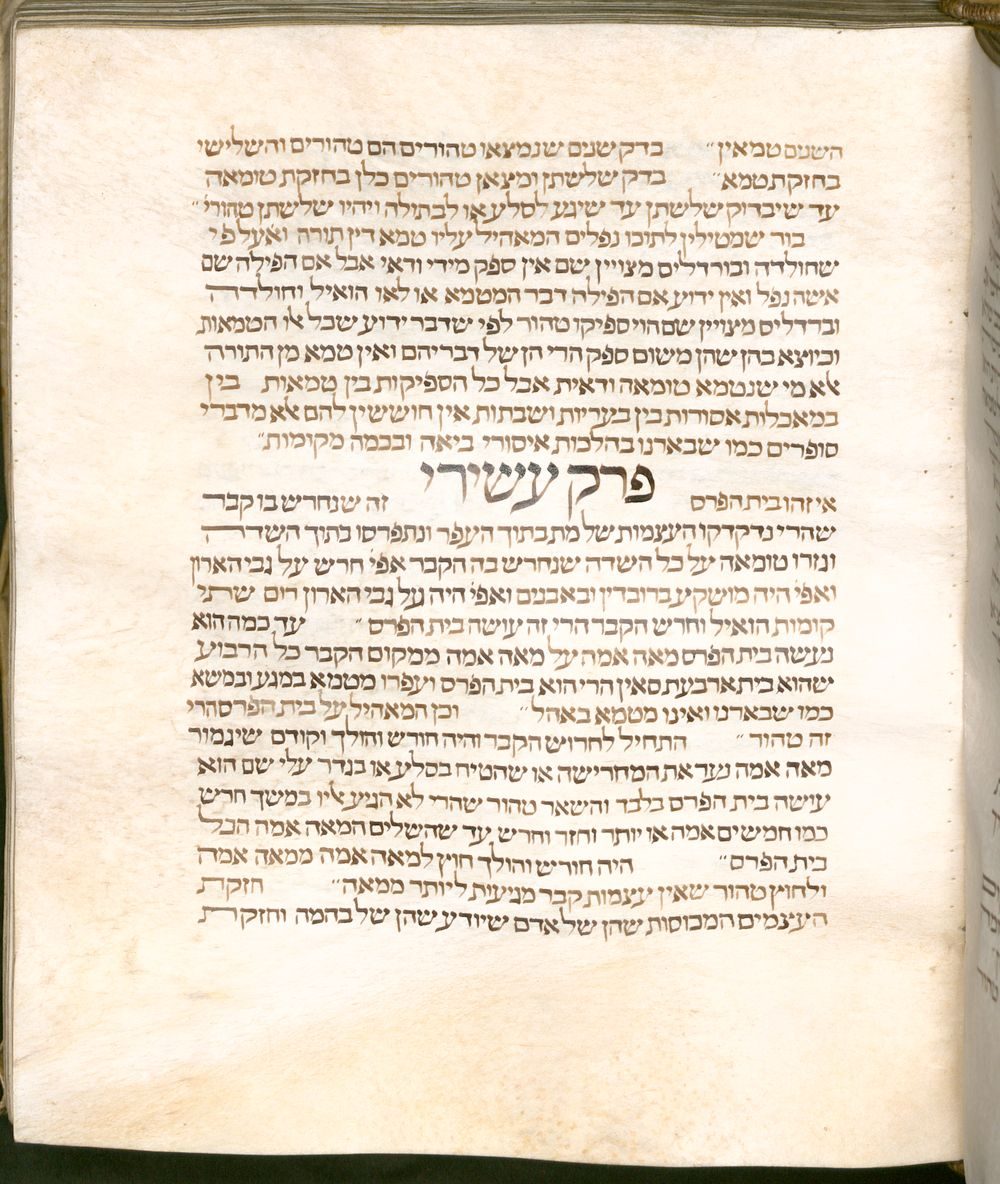 השנים טמאין״ בדק שנים שנמצאו טהורים הם טהורים והשלישי
בחזקת טמא״ בדק שלשתן ומצאן טהורים כלן בחזקת טומאה
עד שיבדוק שלשתן עד שיגע לסלע או לבתולה ויהיו שלשתן טהורי׳״
בור שמטילין לתוכו נפלים המאהיל עליו טמא דין תורה ואעל פי
שחולדה וברדלים מצויין שם אין ספק מידי ודאי אבל אם הפילה שם
אשה נפל ואין ידוע אם הפילה דבר המטמא או לאו הואיל וחולדה
וברדליס מצויין שם הוי ספיקו טהור לפי שדבר ידוע שכל או הטמאות
וכיוצא בהן שהן משום ספק הרי הן של דבריהם ואין טמא מן התורה
אלא מי שנטמא טומאה ודאית אבל כל הספיקות בין טמאות בין
במאכלות אסורות בין בעריות ושבתות אין חוששין להם אלא מדברי
סופרים כמו שבארנו בהלכות איסורי ביאה ובכמה מקומות״
פרק עשירי
אי זהו בית הפרס זה שנחרש בו קבר
שהרי נדקדקו העצמות של מת בתוך העפר ונתפרסו בתוך השדה
וגזרו טומאה על כל השדה שנחרש בה הקבר אפי׳ חרש על גבי הארון
ואפי׳ היה מושקיע ברובדין ובאבנים ואפי׳ היה על גבי הארון רום שתי
קומות הואיל וחרש הקבר הרי זה עושה בית הפרס״ עד כמה הוא
נעשה בית הפרס מאה אמה על מאה אמה ממקום הקבר כל הרבוע
שהוא בית ארבעת סאין הרי הוא בית הפרס ועפרו מטמא במגע ובמשא
כמו שבארנו ואינו מטמא באהל״ וכן המאהיל על בית הפרס הרי
זה טהור״ התחיל לחרוש הקבר והיה חורש והולך וקודם שיגמור
מאה אמה נער את המחרישה או שהטיח בסלע או בגדר עלי שם הוא
עושה בית הפרס בלבד והשאר טהור שהרי לא הגיע אליו במשך חרש
כמו חמשים אמה או יותר וחזר וחרש עד שהשלים המאה אמה הכל
בית הפרס״ היה חורש והולך חוץ למאה אמה ממאה אמה
ולחוץ טהור שאין עצמות קבר מגיעות ליותר ממאה״ חזקת
העצמים המכוסות שהן של אדם שיודע שהן של בהמה וחזקת